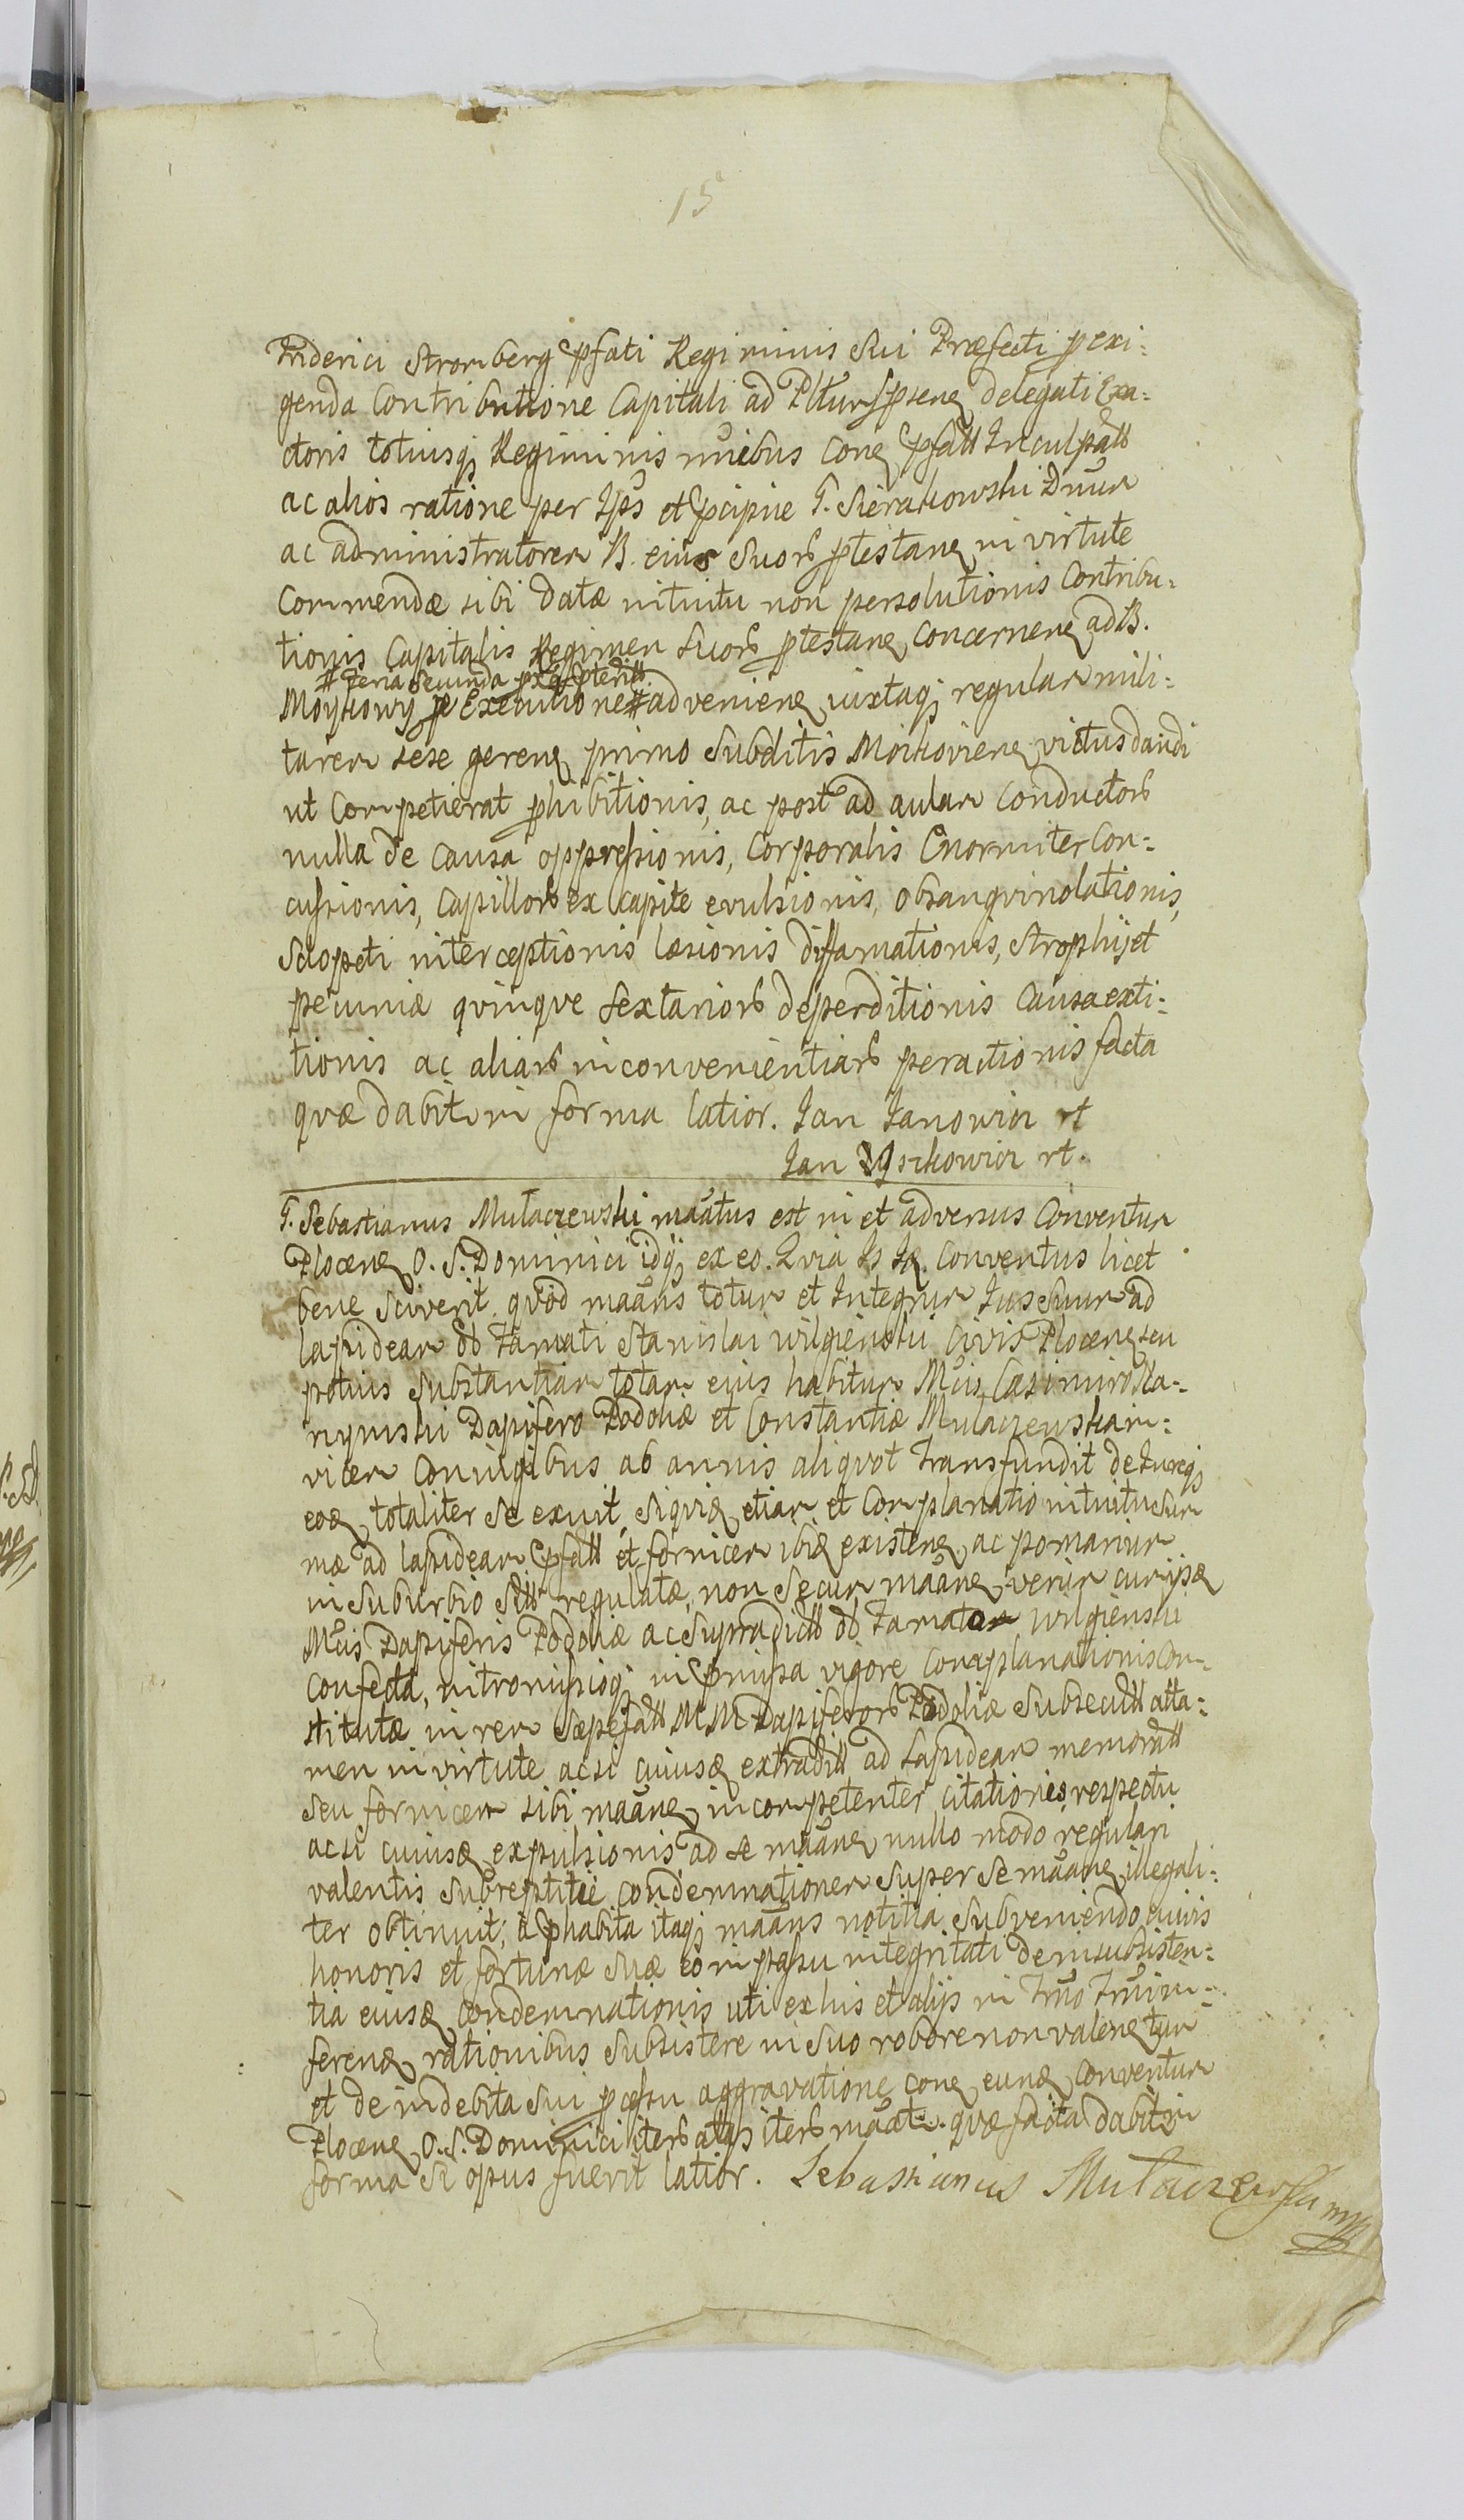 15
Friderici Stromberg pfati Regiminis Sui Præfecti p exi:
genda Contributione Capitali ad delegati Exa:
ctoris totiusq Regiminis cone pfati Inculpati
ac alios ratione per Ips et pcipue G. Sierakowski
ac administratorem B. eius Suor ptestane in virtute
Commendæ sibi datæ intuitu non persolutionis Contribu:
tionis Capitalis Regimen Suor ptestane concernene ad B.
# feria secunda
Moykowy p Executione # adveniene iuxtaq regulam mili:
tarem sese gerene primo Subditis Moikoviene victus dandi
ut Competierat phibitionis, ac post ad aulam Conductor
nulla de Causa oppressionis, Corporalis Enormiter Con:
cussionis, Capillor ex Capite evulsionis, obsangvinolationis,
Sclopeti interceptionis læsionis diffamationis, Strophij et
pecuniæ qvinqve Sextarior deperditionis Causæ exti:
tionis ac aliar inconvenientiar peractionis facta
qvæ dabit in forma latior. Jan Janowicz rt
Jan rt.
G. Sebastianus Mutaczewski maatus est in et adversus Conventum
Plocene O. S. Dominici idq ex eo. Qvia Is Id. Conventus licet
bene Sciverit qvod maans totum et Integrum Jus Suum ad
lapideam ol Famati Stanislai Wilgienski Civis Plocene seu
potius Substantiam totam eius habitum Mcis Casimiro Ka:
rnynski Dapifero Podoliæ et Constantiæ Mutaczewska in:
vicem Coniugibus ab annis aliqvot transfundit de Jureq
eod totaliter se exuit, Siqvid etiam et Complanatio intuitu Sum
mæ ad lapideam pfatt et fornicem ibid existene ac pomarium
in Suburbio Sitt regulatæ, non Secum maane, verum cum ijsd
Mcis Dapiferis Podoliæ ac Supradictt ol Famato Wilgienski
Confecta, intromissioq in pmissa vigore Complanationis Con:
stitutæ in rem Sæpefatt MM Dapiferor Podoliæ Subsecutt atta:
men in virtute ac si cuiusd extraditt ad Lapideam memoratt
Seu fornicem sibi maane incompetenter citationis respectu
ac si cuiusd expulsionis ad se maane nullo modo regulari
valentis Subreptitie Condemnationem Super Se maane illegali:
ter obtinuit, phabita itaq maans notitia Subveniendo iuris
honoris et fortunæ Suæ eo in passu integritati de insubsisten:
tia eiusd Condemnationis uti ex his et alijs in Tmo Tmi in:
ferend rationibus Subsistere in Suo robore non valene tum
et de indebita Sui pcessu aggravatione cone eund Conventum
Plocene O. S. Dominici iter atqs iter maat. qvæ facta dabit in
forma si opus fuerit latior. Sebastianus Mutaczewski mp